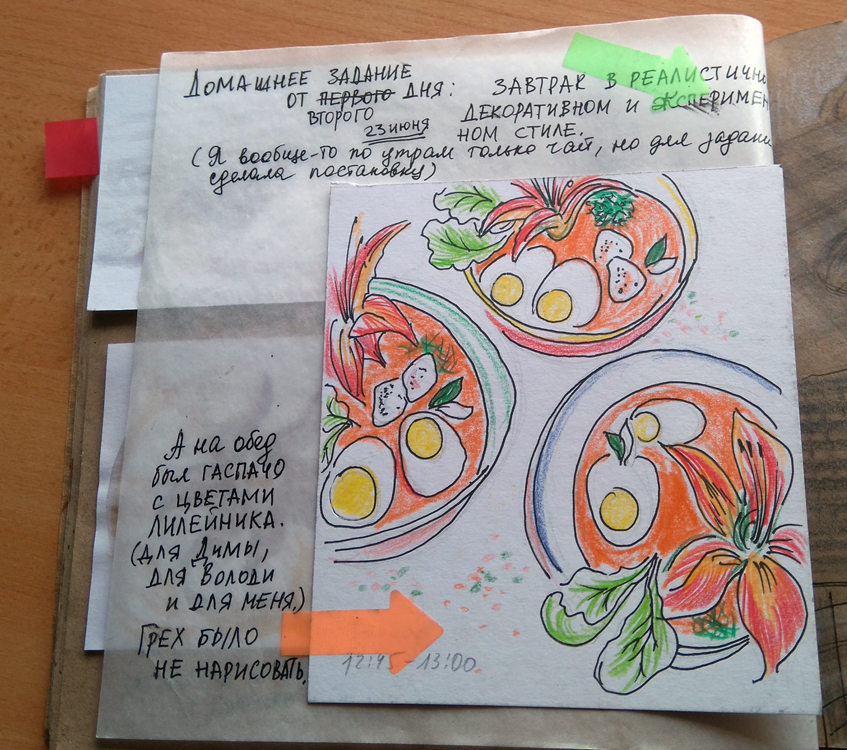 ДОМАШНЕЕ ЗАДАНИЕ
ОТ ПЕРВОГО ДНЯ: ЗАВТРАК В РЕАЛИСТИЧНО
ВТОРОГО ДЕКОРАТИВНОМ И ЭКСПЕРИМЕН
23 ИЮНЯ НОМ СТИЛЕ.
(Я вообще-то по утрам только чай, но для задани
сделала постановку)
А на обед
был ГАСПАЧО
с ЦВЕТАМИ
ЛИЛЕЙНИКА.
(ДЛЯ ДИМЫ,
ДЛЯ ВОЛОДИ
И ДЛЯ МЕНЯ.)
ГРЕХ БЫЛО
НЕ НАРИСОВАТЬ.
12:45-13:00.